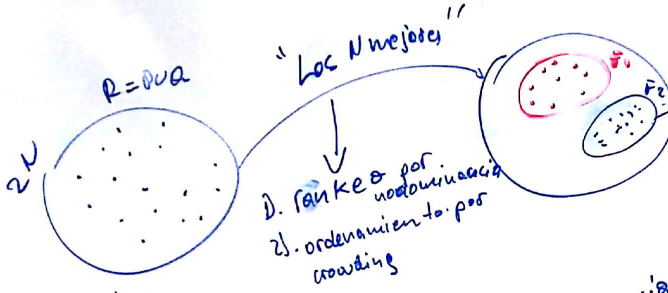 R=PUQ
"Los N mejores"
2N
F1
F2
1). rankeo por
nodominancia
2). ordenamiento por
crowding